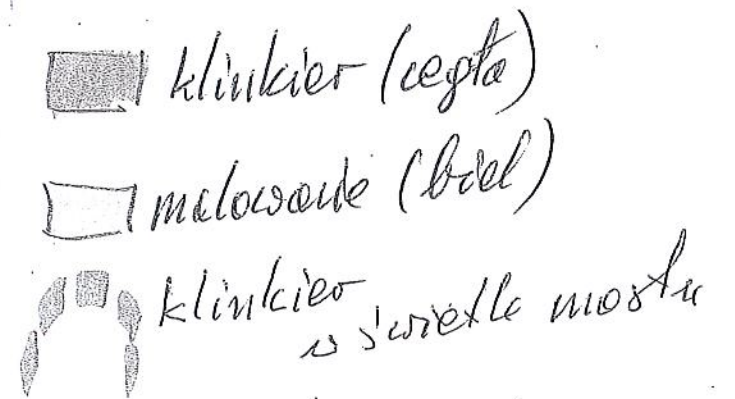 klinkier (cegła)
malowanie (biel)
klinkier
w świetle mostu